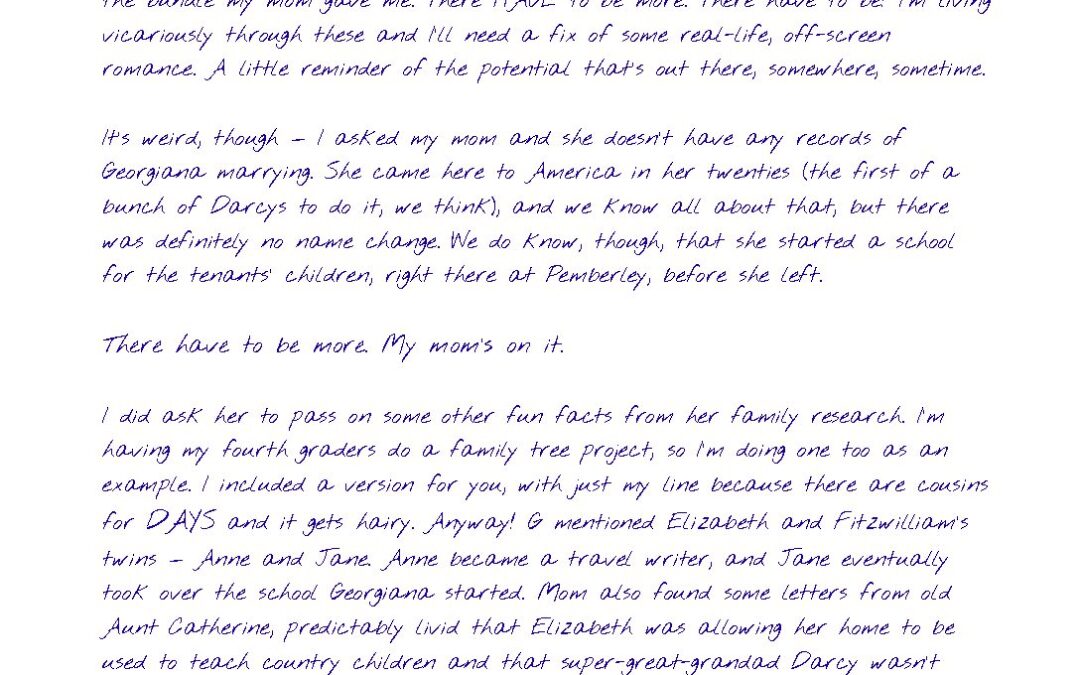 the bundle my mom gave me. There HAVE to be more. There have to be. I'm living
vicariously through these and I'll need a fix of some real-life, off-screen
romance. A little reminder of the potential that's out there, somewhere, sometime.
It's weird, though – I asked my mom and she doesn't have any records of
Georgiana marrying. She came here to America in her twenties (the first of a
bunch of Darcys to do it, we think), and we know all about that, but there
was definitely no name change. We do know, though, that she started a school
for the tenants' children, right there at Pemberley, before she left.
There have to be more. My mom's on it.
I did ask her to pass on some other fun facts from her family research. I'm
having my fourth graders do a family tree project, so I'm doing one too as an
example. I included a version for you, with just my line because there are cousins
for DAYS and it gets hairy. Anyway! G mentioned Elizabeth and Fitzwilliam's
twins – Anne and Jane. Anne became a travel writer, and Jane eventually
took over the school Georgiana started. Mom also found some letters from old
Aunt Catherine, predictably livid that Elizabeth was allowing her home to be
used to teach country children and that super-great-grandad Darcy wasn't